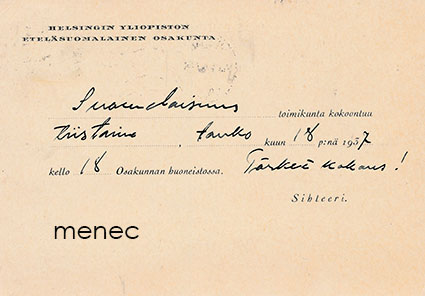 HELSINGIN YLIOPISTON
ETELÄSUOMALAINEN OSAKUNTA
Suomalaisuus toimikunta kokoontuu
tiistaina kuun 18 p:nä 1937
kello 18 Osakunnan huoneistossa. Tärkeä kokous!
Sihteeri.
menec